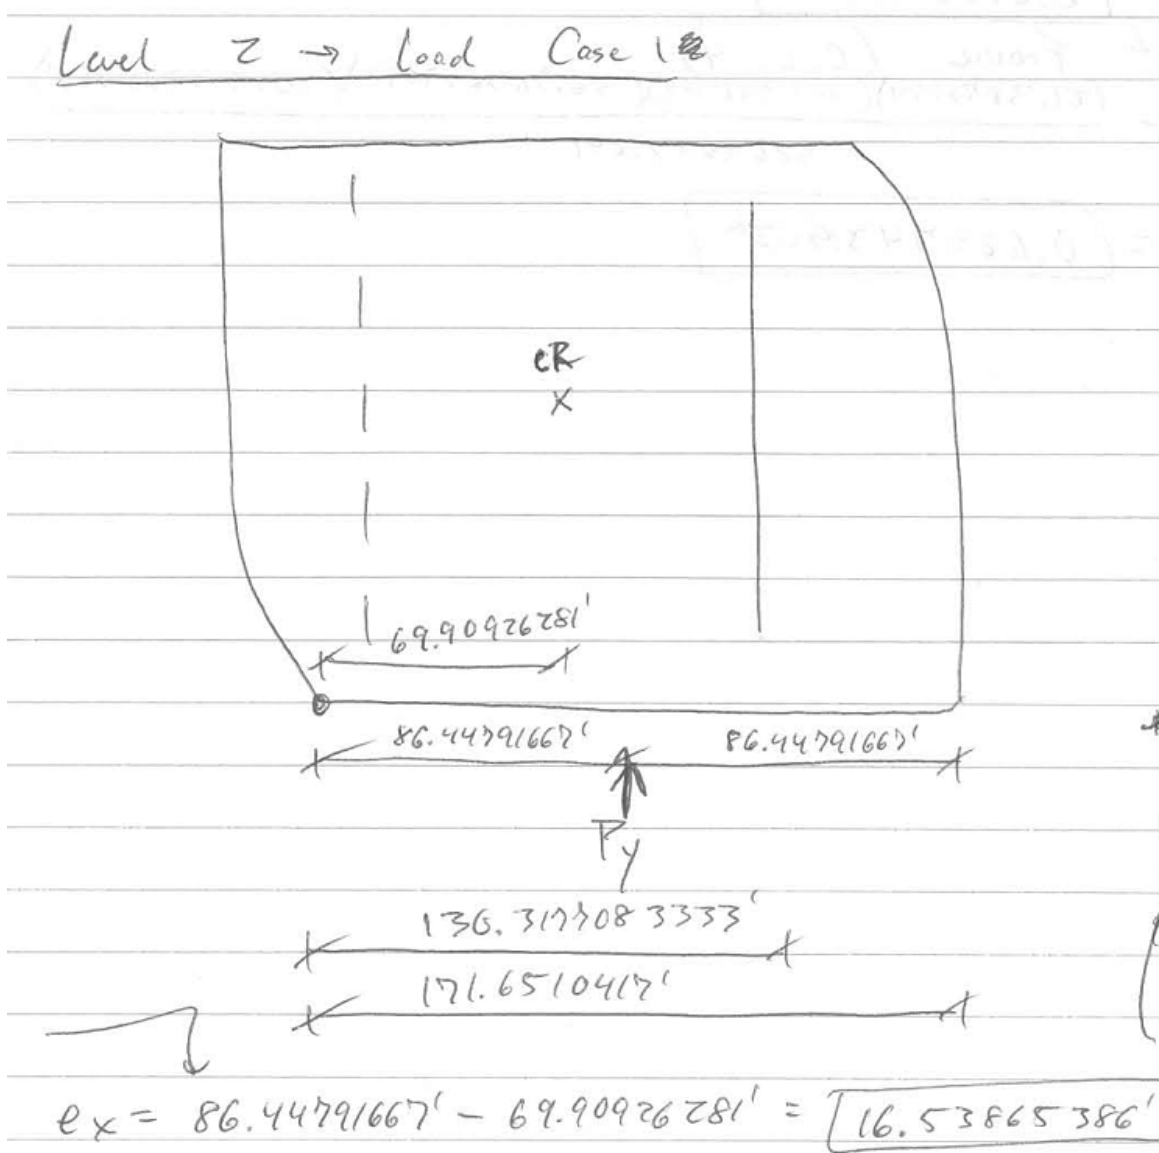 Level 2 → Load Case 1
CR
X
69.90926281'
86.44791667' 86.44791667'
Py
136.3177083333'
171.6510417'
ex = 86.44791667' - 69.90926281' = 16.53865386'